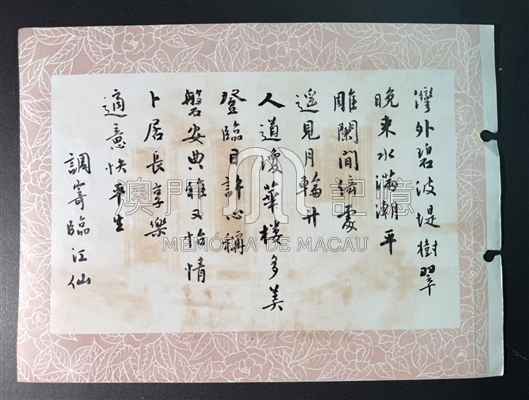 灣外碧波堤樹翠
晚來水滿潮平
雕闌間處
遙見月輪升
人道瓊華樓多美
登臨目許心稱
磐安典雅又怡情
卜居長享樂
適意快平生
調寄臨江仙
澳門記憶
MEMÓRIA DE MACAU